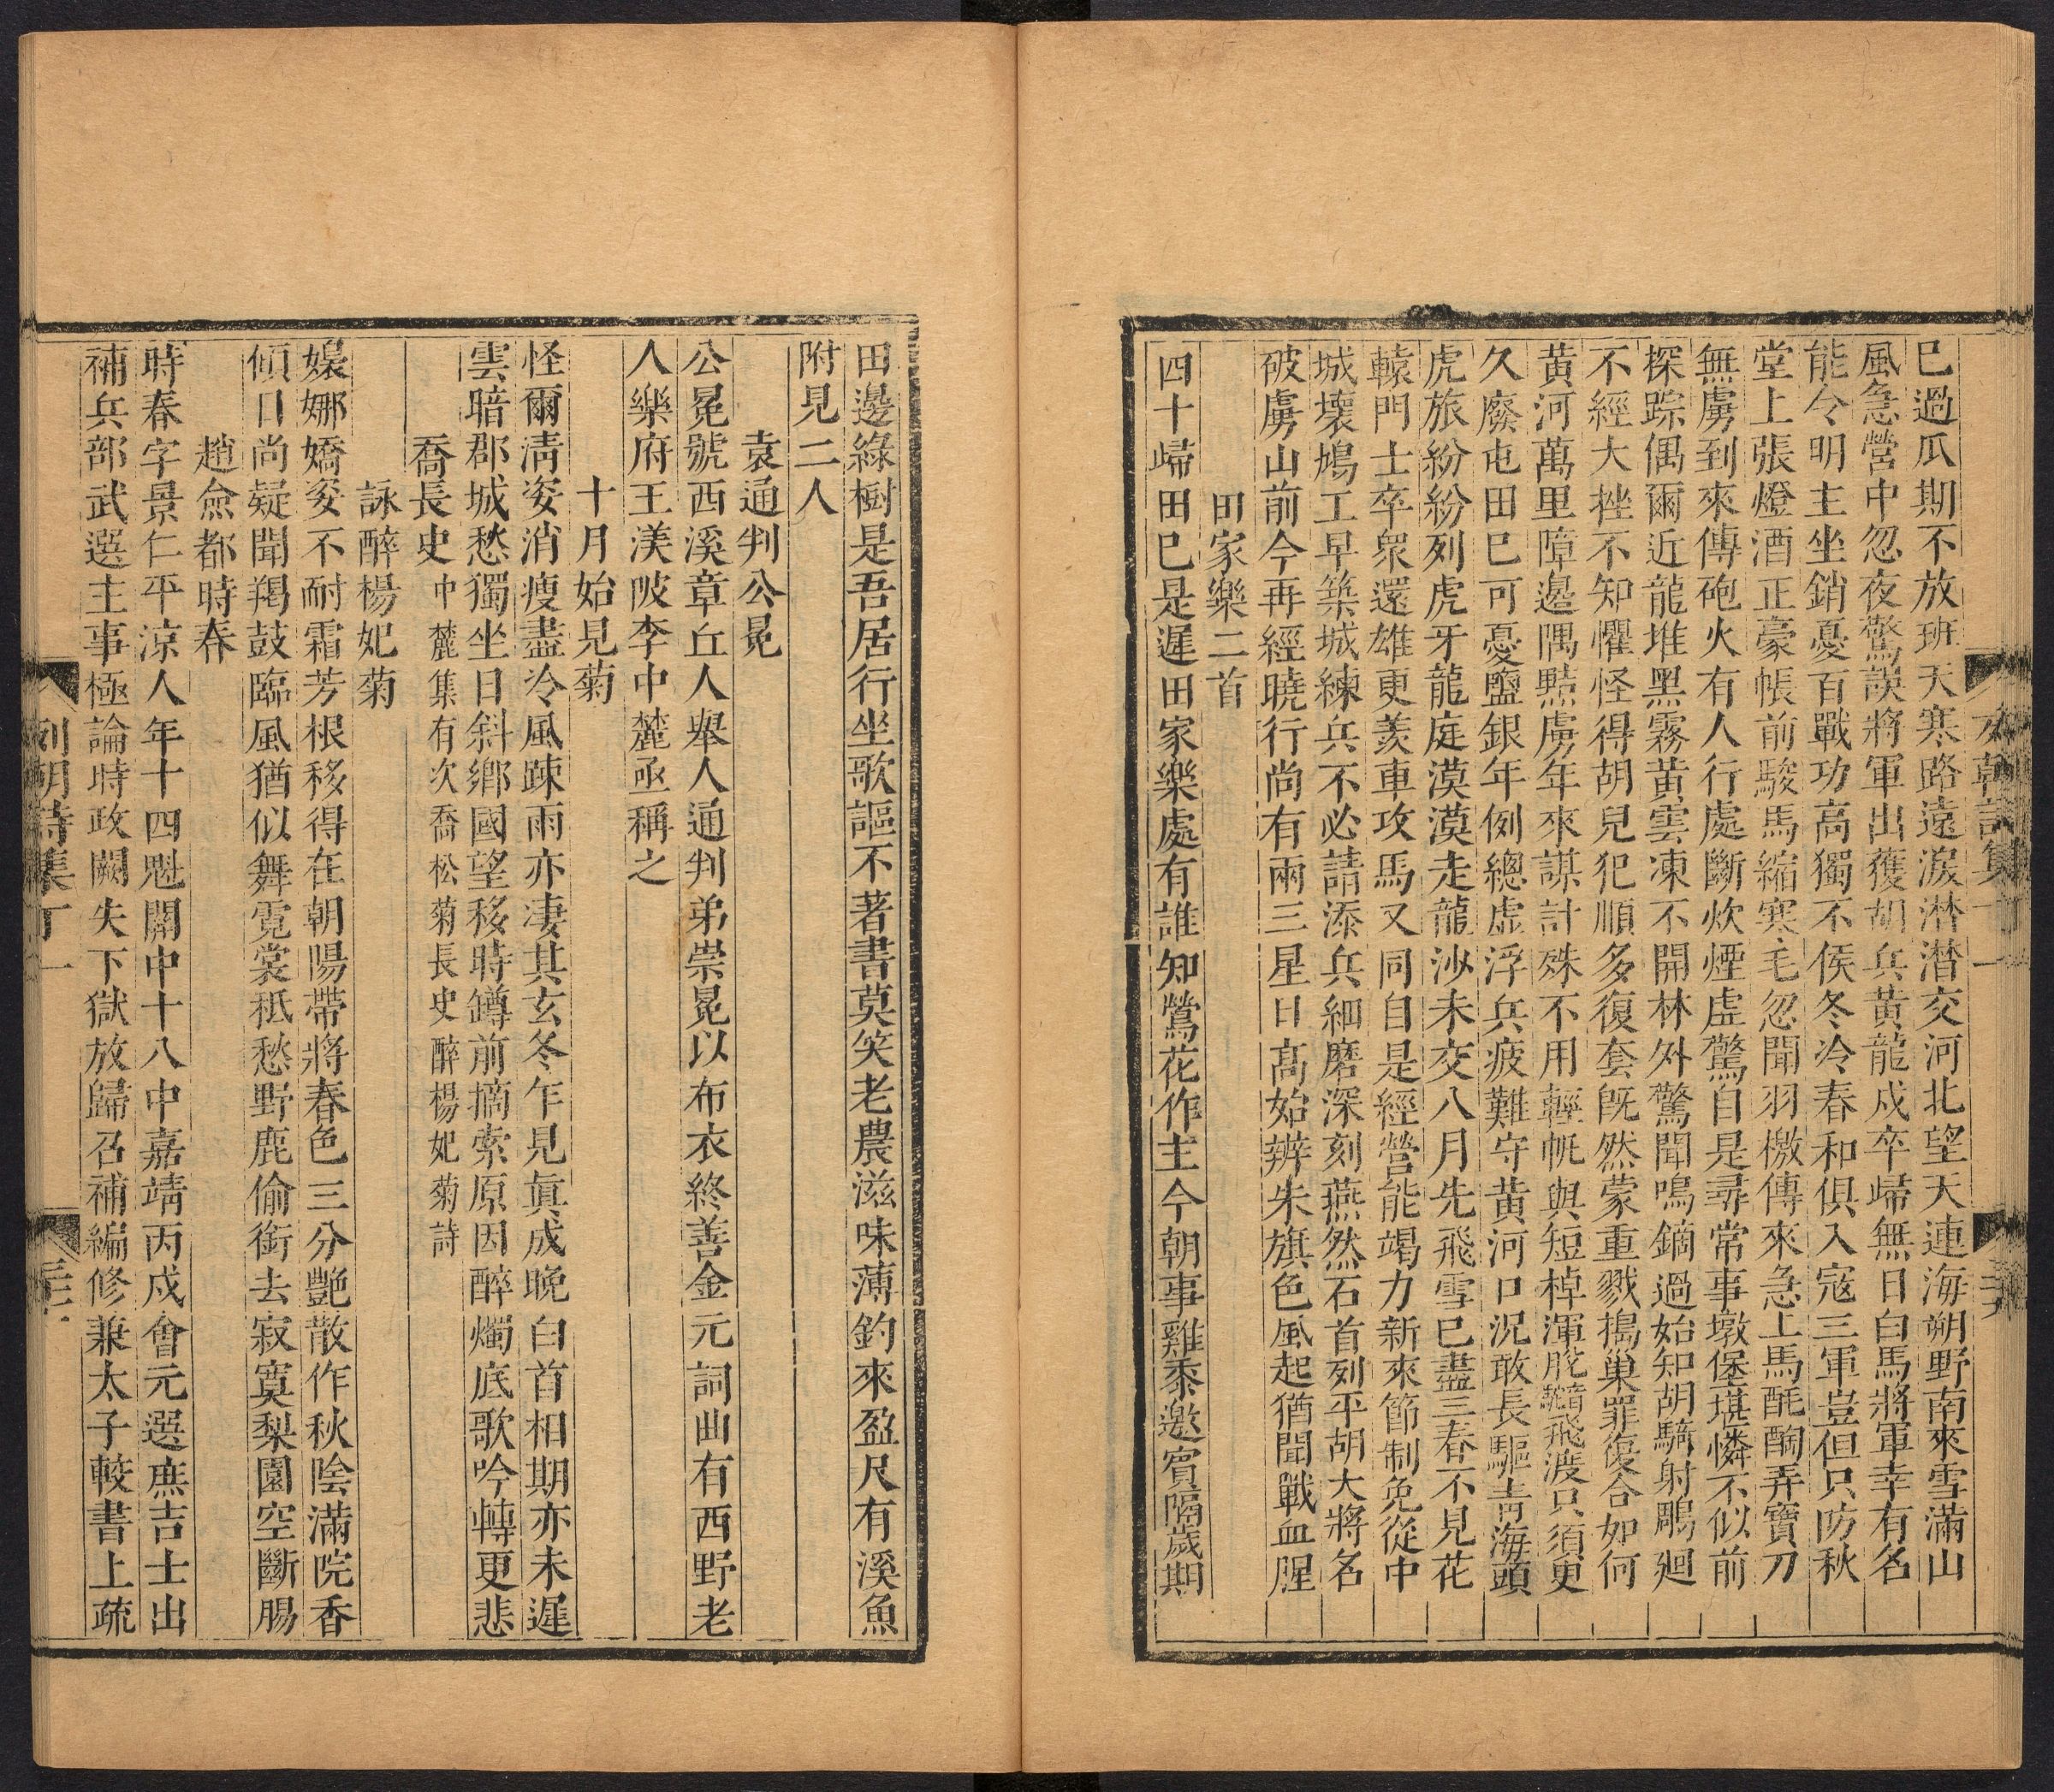 列朝詩集丁一
已過瓜期不放班天寒路遠淚潸潸交河北望天連海朔野南來雪滿山
風急營中忽夜驚誤將軍出獲胡兵黃龍戍卒歸無日白馬將軍幸有名
能令明主坐銷憂百戰功高獨不侯冬冷春和俱入寇三軍豈但只防秋
堂上張燈酒正豪帳前駿馬縮寒毛忽聞羽檄傳來急上馬酕醄弄寶刀
無虜到來傳砲火有人行處斷炊煙虛驚自是尋常事墩堡堪憐不似前
探踪偶爾近龍堆黑霧黃雲凍不開林外驚聞鳴鏑過始知胡騎射鵰廻
不經大挫不知懼怪得胡兒犯順多復套既然蒙重戮搗巢罪復合如何
黃河萬里障邊隅黠虜年來謀計殊不用輕帆與短棹渾脫飛渡只須更
久廢屯田已可憂鹽銀年例總虛浮兵疲難守黃河口況敢長驅靑海頭
虎旅紛紛列虎牙龍庭漠漠走龍沙未交八月先飛雪已盡三春不見花
轅門士卒衆還雄更羨車攻馬又同自是經營能竭力新來節制免從中
城壞鳩工早築城練兵不必請添兵細磨深刻燕然石首列平胡大將名
破虜山前今再經曉行尚有兩三星日高始辨朱旗色風起猶聞戰血腥
田家樂二首
四十歸田已是遲田家樂處有誰知鶯花作主今朝事雞黍邀賓隔歲期
田邊綠樹是吾居行坐歌謳不著書莫笑老農滋味薄釣來盈尺有溪魚
附見二人
袁通判公冕
公冕號西溪章丘人舉人通判弟崇冕以布衣終善金元詞曲有西野老
人樂府王渼陂李中麓亟稱之
十月始見菊
怪爾淸姿消瘦盡冷風踈雨亦淒其玄冬乍見眞成晚白首相期亦未遲
雲暗郡城愁獨坐日斜鄉國望移時罇前摘索原因醉燭底歌吟轉更悲
喬長史中麓集有次喬松菊長史醉楊妃菊詩
詠醉楊妃菊
嬝娜嬌姿不耐霜芳根移得在朝陽帶將春色三分艷散作秋陰滿院香
傾日尚疑聞羯鼓臨風猶似舞霓裳秪愁野鹿偷銜去寂寞梨園空斷腸
趙僉都時春
時春字景仁平凉人年十四魁關中十八中嘉靖丙戌會元選庶吉士出
補兵部武選主事極論時政闕失下獄放歸召補編修兼太子較書上疏
列朝詩集丁一